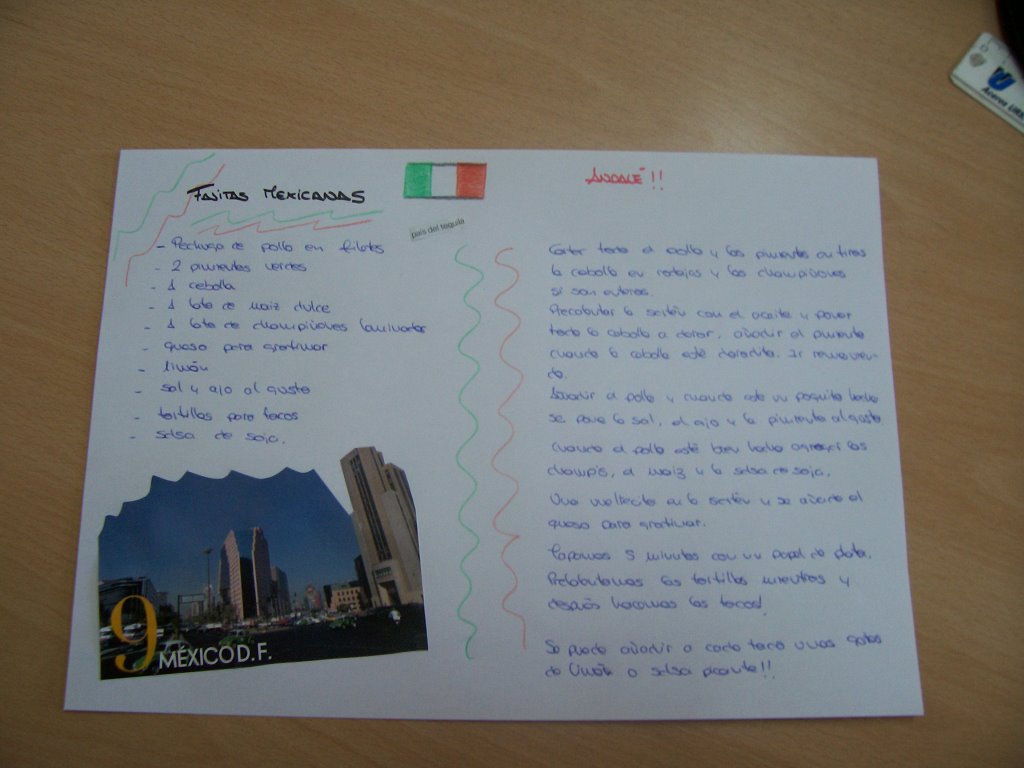 FAJITAS MEXICANAS
país del tequila
- Pechuga de pollo en filetes
- 2 pimientos verdes
- 1 cebolla
- 1 lata de maiz dulce
- 1 lata de champiñones laminados
- queso para gratinar
- limón
- sal y ajo al gusto
- tortillas para tacos
- salsa de soja.
9 MÉXICO D.F.
ANDALÉ!!
Cortar todo el pollo y los pimientos en tiras
la cebolla en rodajas y los champiñones
si son enteros.
Precalentar la sartén con el aceite y poner
toda la cebolla a dorar, añadir el pimiento
cuando la cebolla esté doradita. Ir removien-
do.
Añadir el pollo y cuando esté un poquito hecho
se pone la sal, el ajo y la pimienta al gusto.
Cuando el pollo esté bien hecho agregar los
champis, el maiz y la salsa de soja.
Una vueltecita en la sartén y se añade el
queso para gratinar.
Tapamos 5 minutos con un papel de plata.
Precalentamos las tortillas mientras y
después hacemos los tacos!
Se puede añadir a cada taco unas gotas
de limón o salsa picante!!